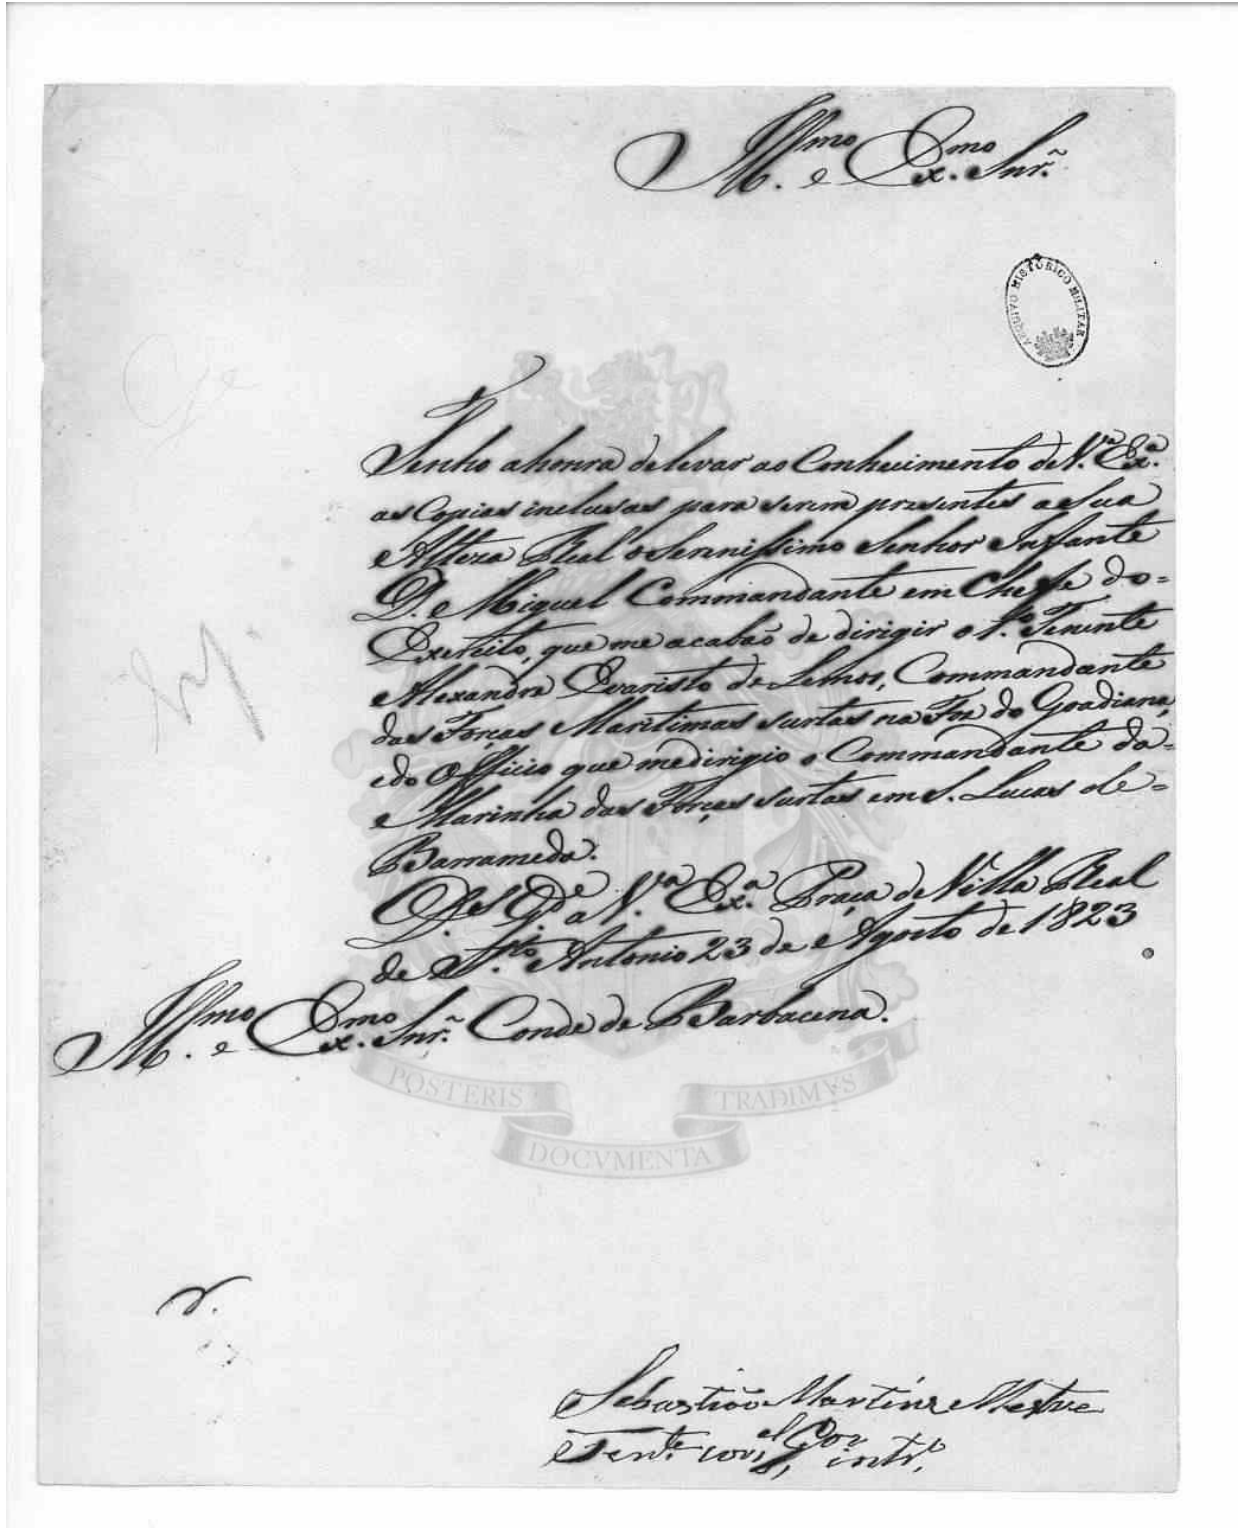 Illmo. e Exmo. Snr.
ARQUIVO HISTÓRICO MILITAR
Tenho ahonra delevar ao Conhecimento de V.ª Ex.ª
as Copias inclusas para serem presentes a Sua
Alteza Real o Serenissimo Senhor Infante
D. Miguel Commandante em Cheffe do=
Exercito, que me acabão de dirigir o 1.º Tenente
Alexandre Evaristo de Lemos, Commandante
das Forças Maritimas surtas na Foz do Goadiana,
edo Officio que medirigio o Commandante da=
Marinha das Forças surtas em S. Lucas de=
Barrameda.
D.s G.de a V.ª Ex.ª Praça de Villa Real
de S.to Antonio 23 de Agosto de 1823
Illmo. e Exmo. Snr. Conde de Barbacena.
POSTERIS
TRADIMVS
DOCVMENTA
Sebastião Martins Mestre
Ten.te cor.el Gov.or intr.º